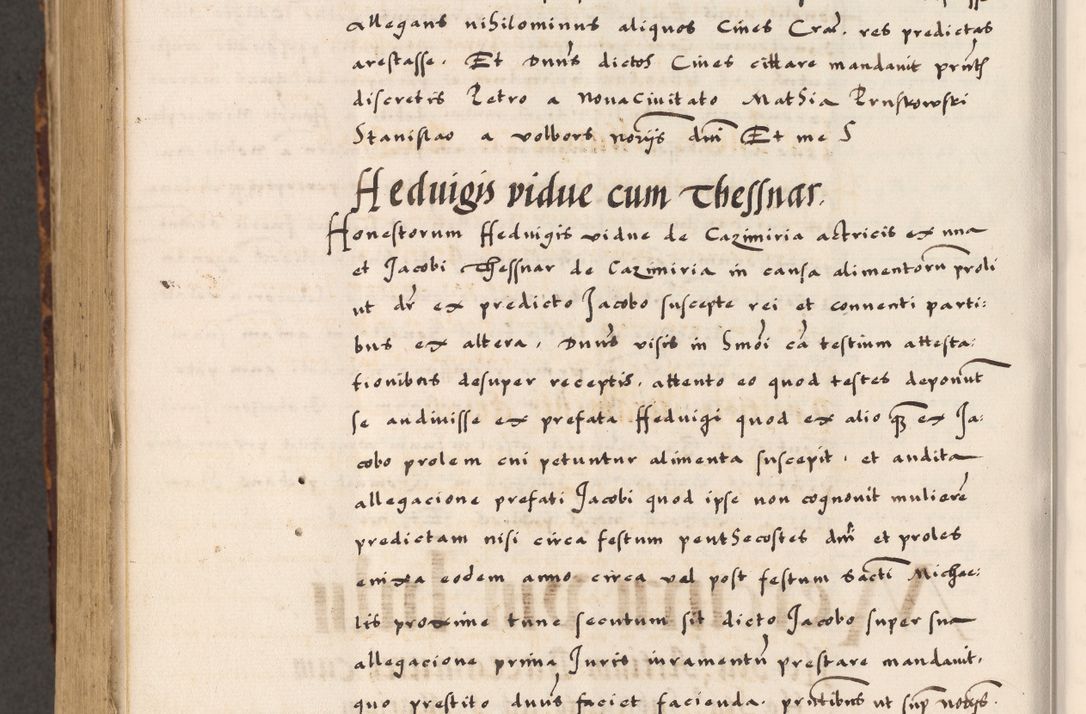 allegans nihilominus aliquos Cives Cra. res predictas
arestasse. Et Dnus dictos Cives cittare mandavit pntb
discretis Petro a Novacivitato Mathia Prnskowski
Stanislao a volbors noriis dni Et me S
Heduigis vidue cum Thessnar.
Honestorum Heduigis vidue de Cazimiria actricis ex una
et Jacobi Thessnar de Cazimiria in causa alimentoru proli
ut dr ex predicto Jacobo suscepte rei et conventi parti:
bus ex altera. Dnus visis in hmoi ca testium attesta:
tionibus desuper receptis. attento eo quod testes deponut
se audivisse ex prefata Heduigi quod ex alio qz ex Ja:
cobo prolem cui petuntur alimenta suscepit. et audita
allegacione prefati Jacobi quod ipse non cognovit muliere
predictam nisi circa festum penthecostes dni et proles
enixa eodem anno circa vel post festum sacti Michae:
lis proxime tunc secutum sit dicto Jacobo super sua
allegacione prima Juris iuramentu prestare mandavit.
quo prestito dnus faciet facienda. pntibus ut sup nobis.